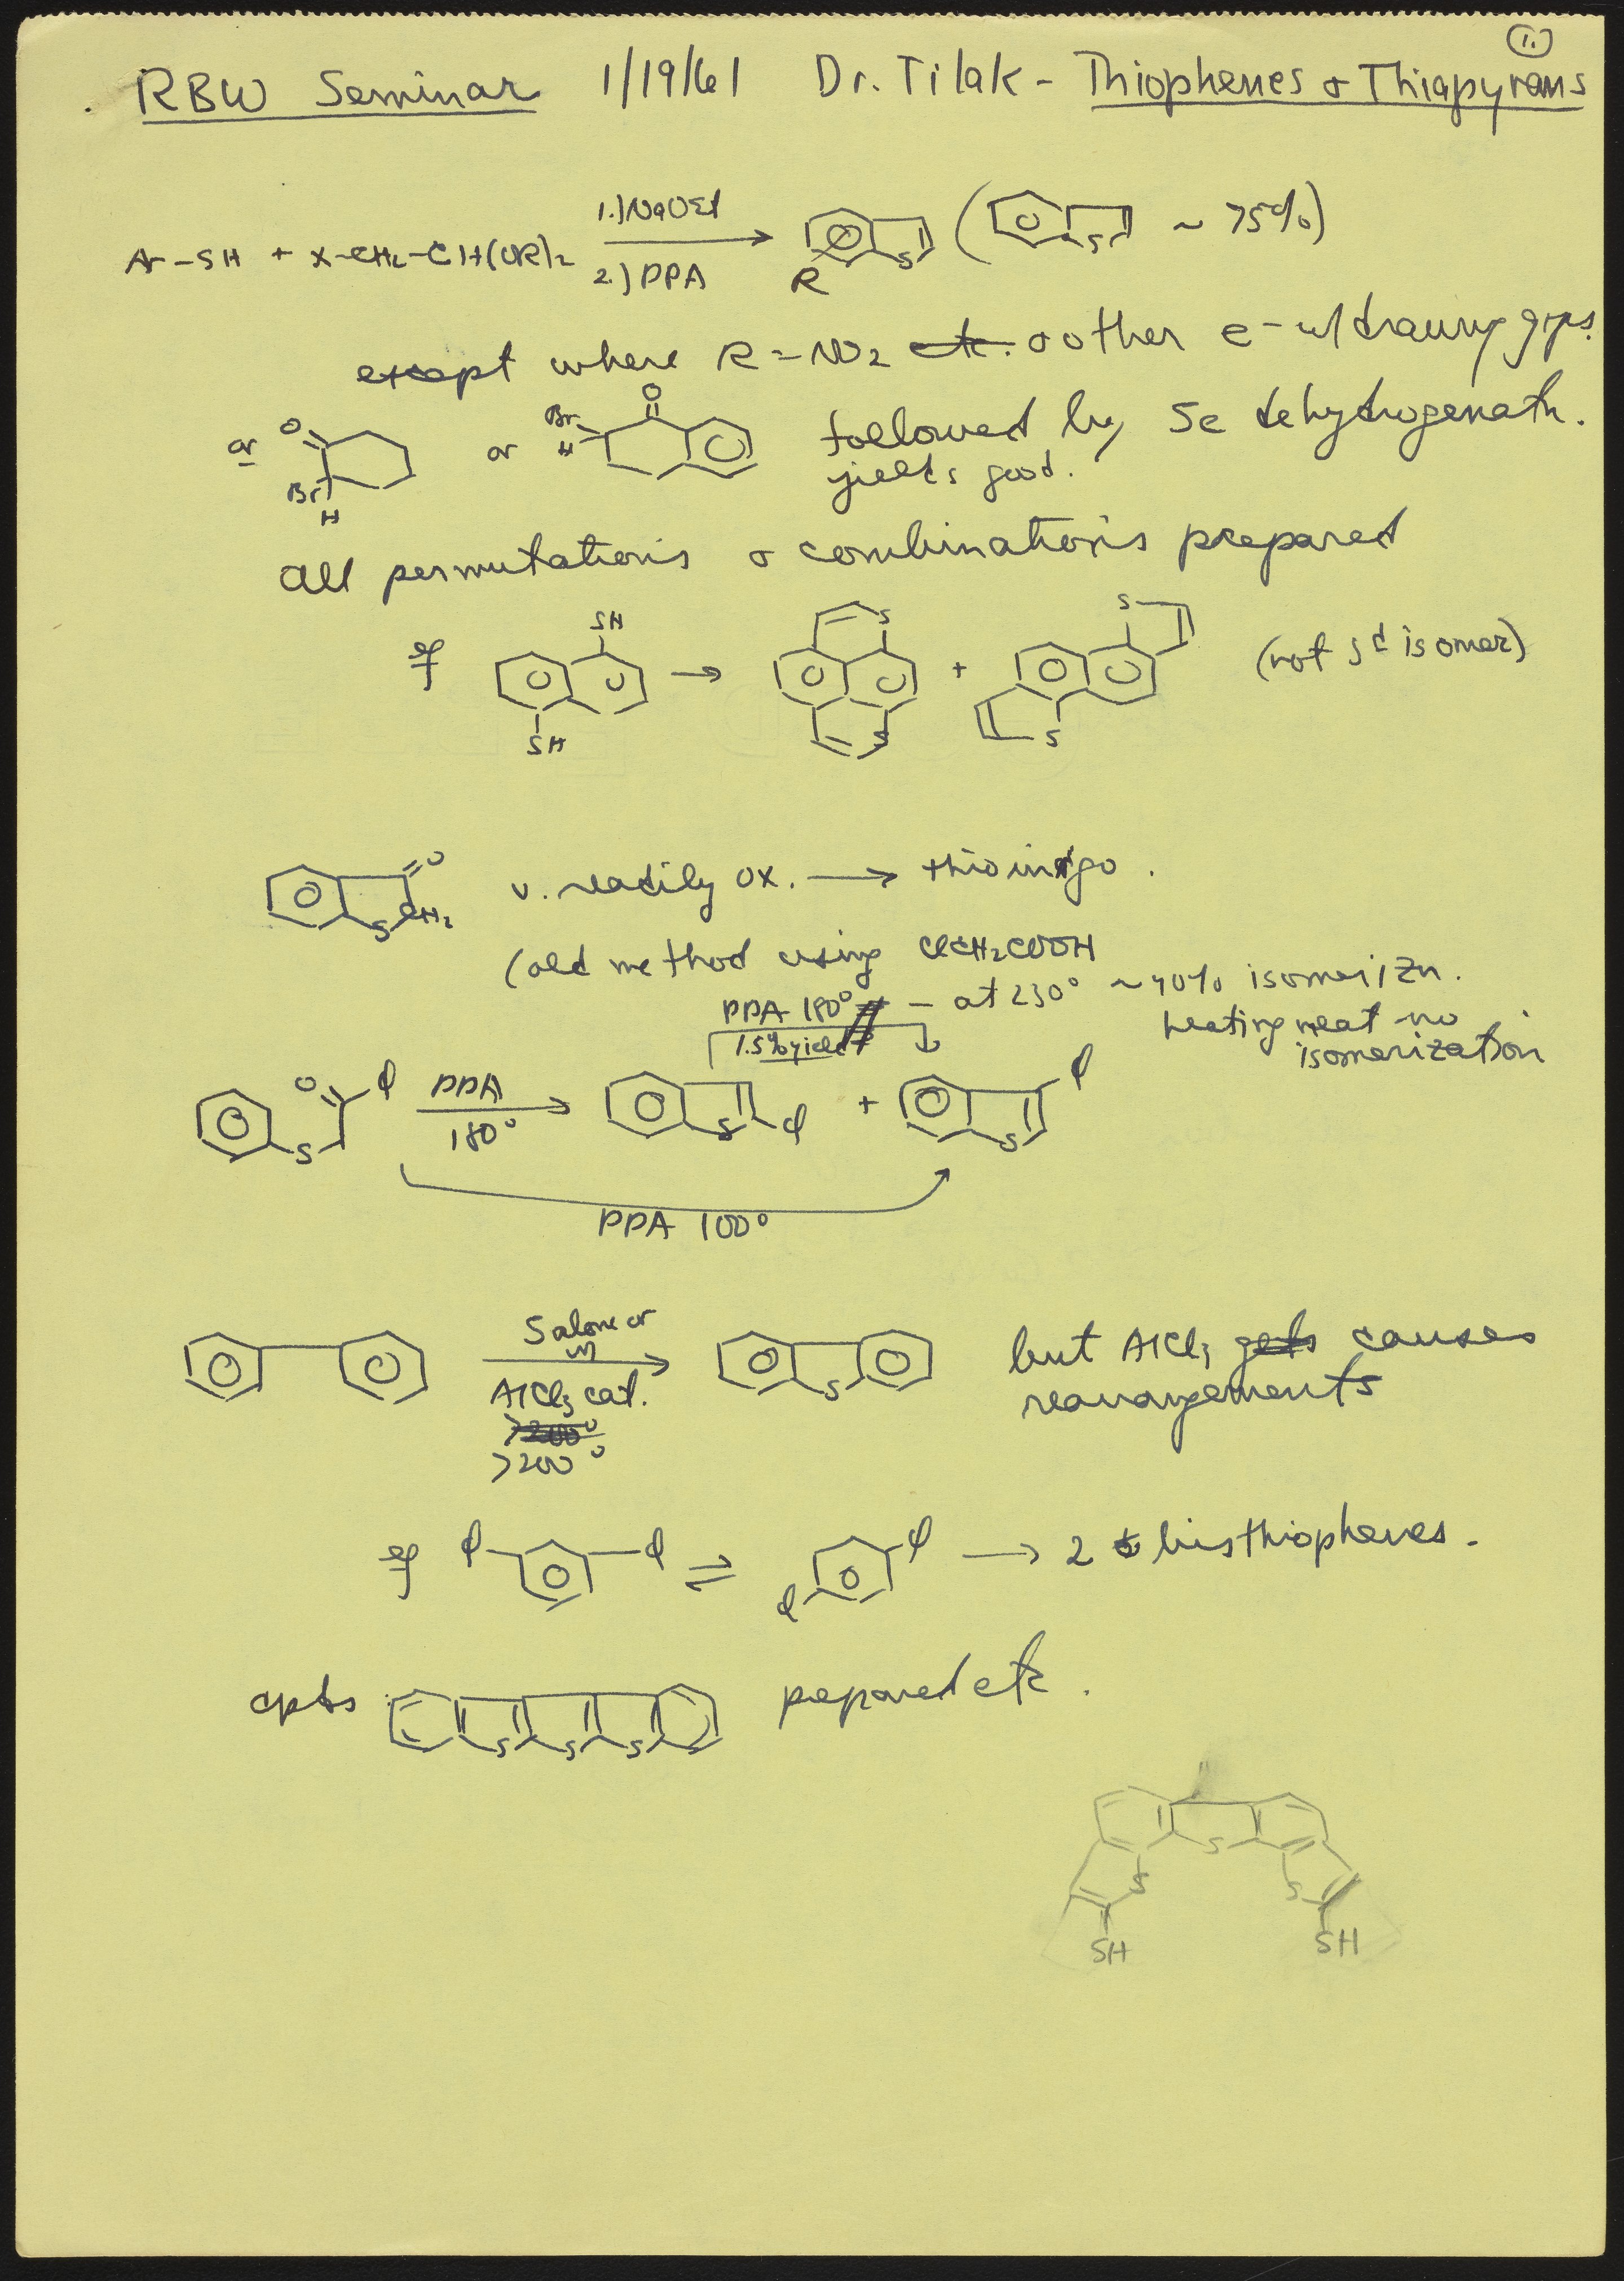 1.
RBW Seminar 1/19/61 Dr. Tilak - Thiophenes & Thiapyrans
Ar-SH + X-CH2-CH(OR)2 1.) NaOEt 2.) PPA R S ( S ~ 75%)
except where R = NO2 etc. & other e- w/drawing grps.
or O Br H or Br H O followed by Se dehydrogenatn.
yields good.
All permutations & combinations prepared
eg SH SH → S S + S S (not 3d isomer)
O S CH2 v. readily ox. → thioindigo.
(old method using ClCH2COOH
PPA 180° - at 230° ~40% isomerizn.
1.5% yield heating neat no
isomerization
O φ S PPA 180° → S φ + S φ
PPA 100°
S alone or
AlCl3 cat. → S but AlCl3 gets causes
>200° rearrangements
>200°
eg φ φ ⇌ φ φ → 2 bisthiophenes.
cpds S S S prepared etc.
S
S S
SH SH